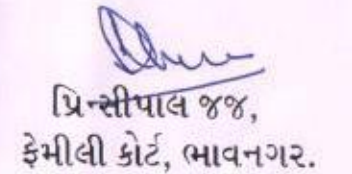 પ્રિન્સીપાલ જજ,
ફેમીલી કોર્ટ, ભાવનગર.